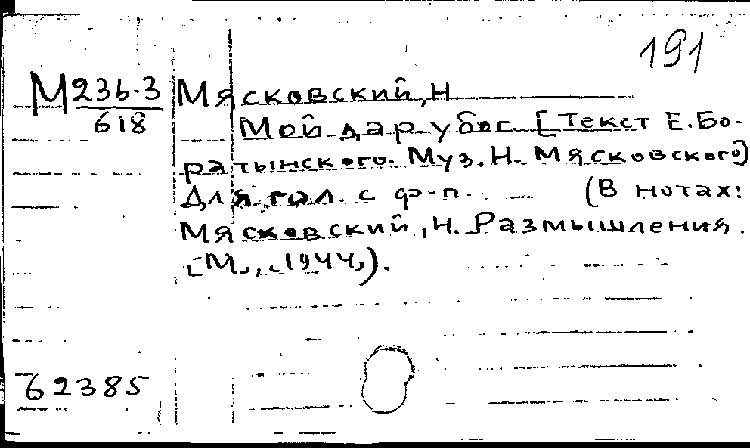 191
М236-3 Мясковский, Н
618
Мой дар убог [Текст Е. Бо-
ратынского. Муз. Н. Мясковского]
Для гол. с ф-п. (В нотах:
Мясковский, Н. Размышления.
[М., 1944,).
62385